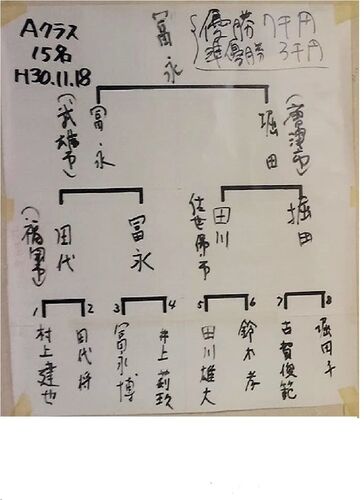 Aクラス
15名
H30.11.18
優勝 7千円
準優勝 3千円
冨永
(武雄市)
冨永
堀田
(唐津市)
(福岡市)
田代
冨永
佐世保市
田川
堀田
1 2 3 4 5 6 7 8
村上達也
田代将
冨永博
井上
田川雄大
鈴木孝
古賀俊範
堀田